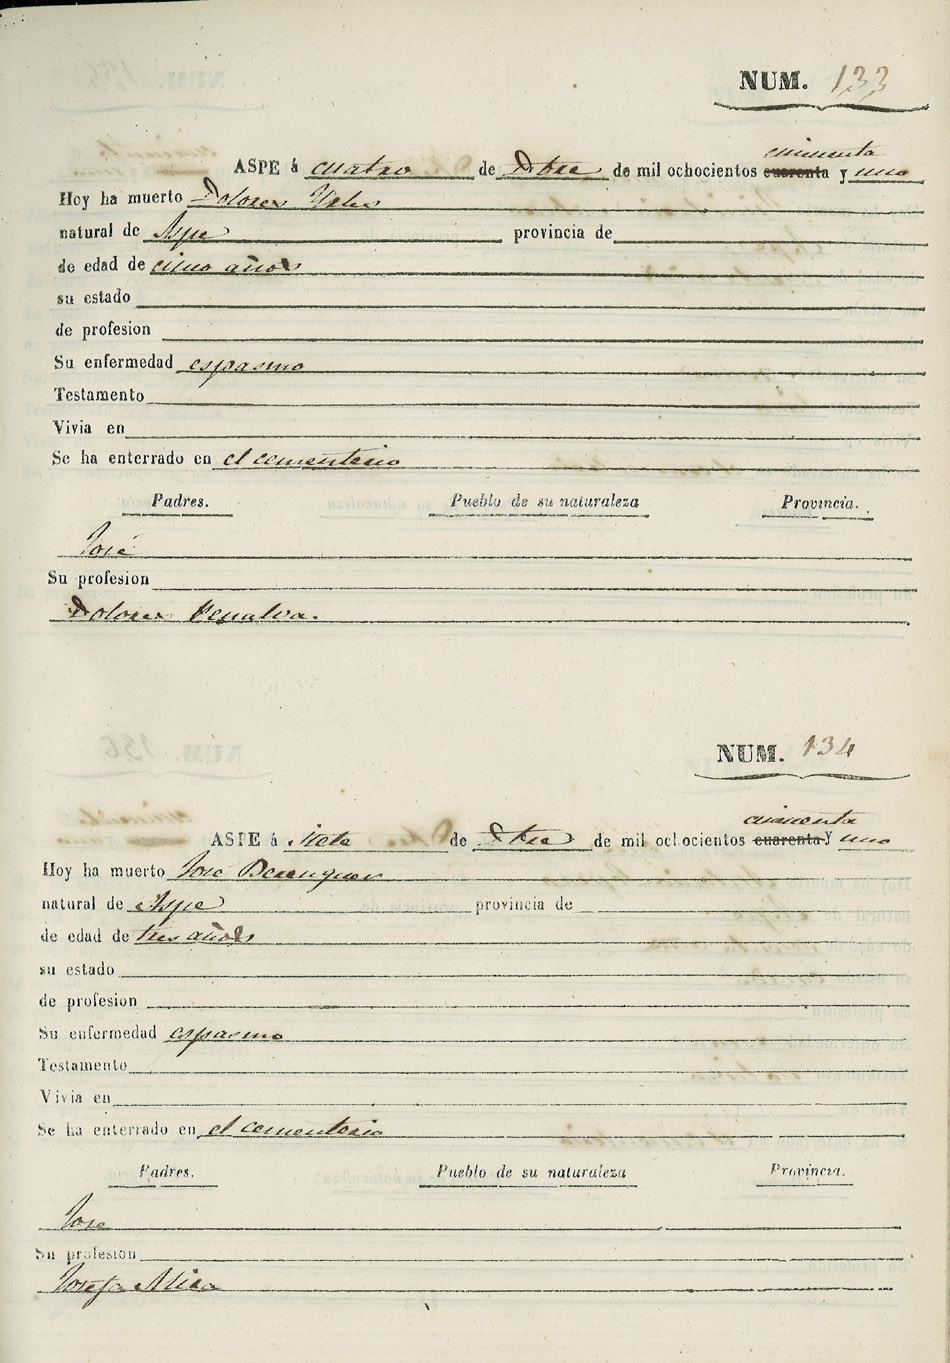 NUM. 133
cincuenta
ASPE á cuatro de Dbre de mil ochocientos cuarenta y uno
Hoy ha muerto Dolores
natural de Aspe provincia de
de edad de cinco años
su estado
de profesion
Su enfermedad espasmo
Testamento
Vivia en
Se ha enterrado en el cementerio
Padres. Pueblo de su naturaleza Provincia.
José
Su profesion
Dolores Penalva.
NUM. 134
cincuenta
ASPE á siete de Dbre de mil ochocientos cuarenta y uno
Hoy ha muerto José Berenguer
natural de Aspe provincia de
de edad de tres años
su estado
de profesion
Su enfermedad espasmo
Testamento
Vivia en
Se ha enterrado en el cementerio
Padres. Pueblo de su naturaleza Provincia.
Jose
Su profesion
Josefa